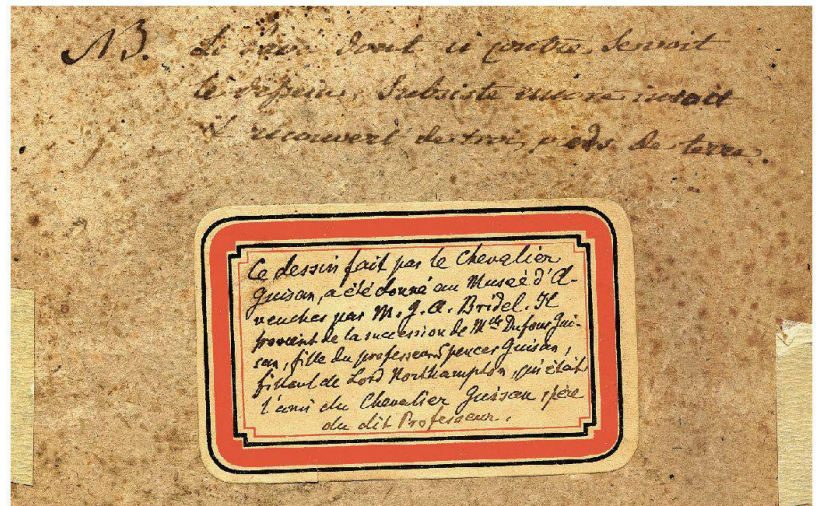 NB. Le pavé dont ci contre se voit
le dessin, Subsiste encore intact
& recouvert de trois pieds de terre.
Ce dessin fait par le Chevalier
Guisan, a été donné au Musée d'A-
venches par M. G. A. Bridel. Il
provient de la succession de Mlle Dufour Gui-
san, fille du professeur Spencer Guisan,
filleul de Lord Northampton, qui était
l'ami du Chevalier Guisan père
du dit Professeur.